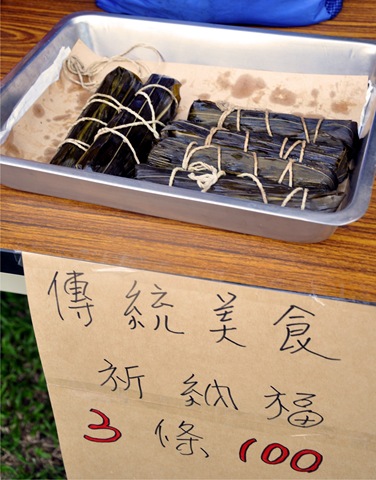 傳統美食
祈納福
3條100